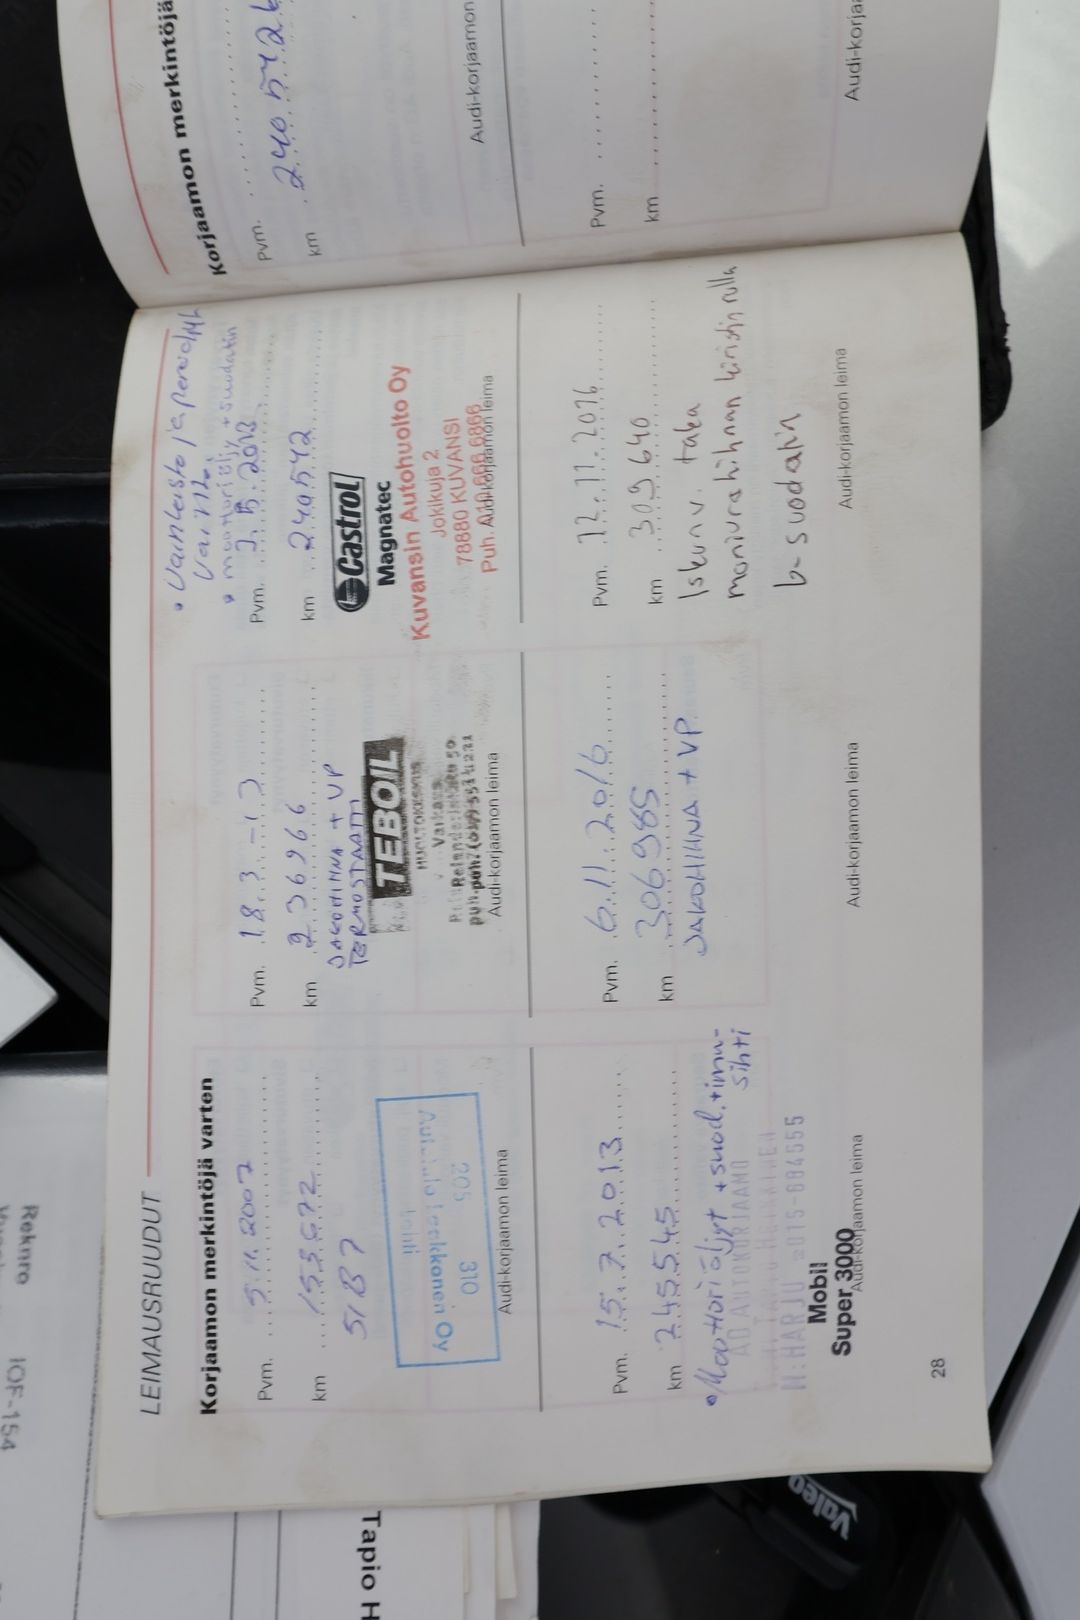 LEIMAUSRUUDUT
Korjaamon merkintöjä varten
Pvm. 5.11.2007
km 153672
51B7
310
Audi-korjaamon leima
Pvm. 18.3-13
km 236966
JAKOHIHNA + VP
TERMOSTAATTI
TEBOIL
HUOLTOASEMA
Varkaus
Audi-korjaamon leima
• Vaihteisto ja perä öljyt
• moottoriöljy + suodatin
Pvm. 2.5.2013
km 240542
Castrol
Magnatec
Kuvansin Autohuolto Oy
Jokikuja 2
78880 KUVANSI
Puh.
Audi-korjaamon leima
Pvm. 15.7.2013
km 245545
• Moottoriöljyt + suod. + imu-
sihti
AD AUTOKORJAAMO
Mobil
Super 3000
Audi-korjaamon leima
Pvm. 6.11.2016
km 306985
JAKOHIHNA + VP
Audi-korjaamon leima
Pvm. 12.11.2016
km 309640
Iskunv. taka
moniurahihnan kiristin rulla
b-suodatin
Audi-korjaamon leima
28
Korjaamon merkintöjä
Pvm.
km 240542
Audi-korjaamon
Pvm.
km
Audi-korjaa
Reknro
IOF-154
Tapio H
Valeo